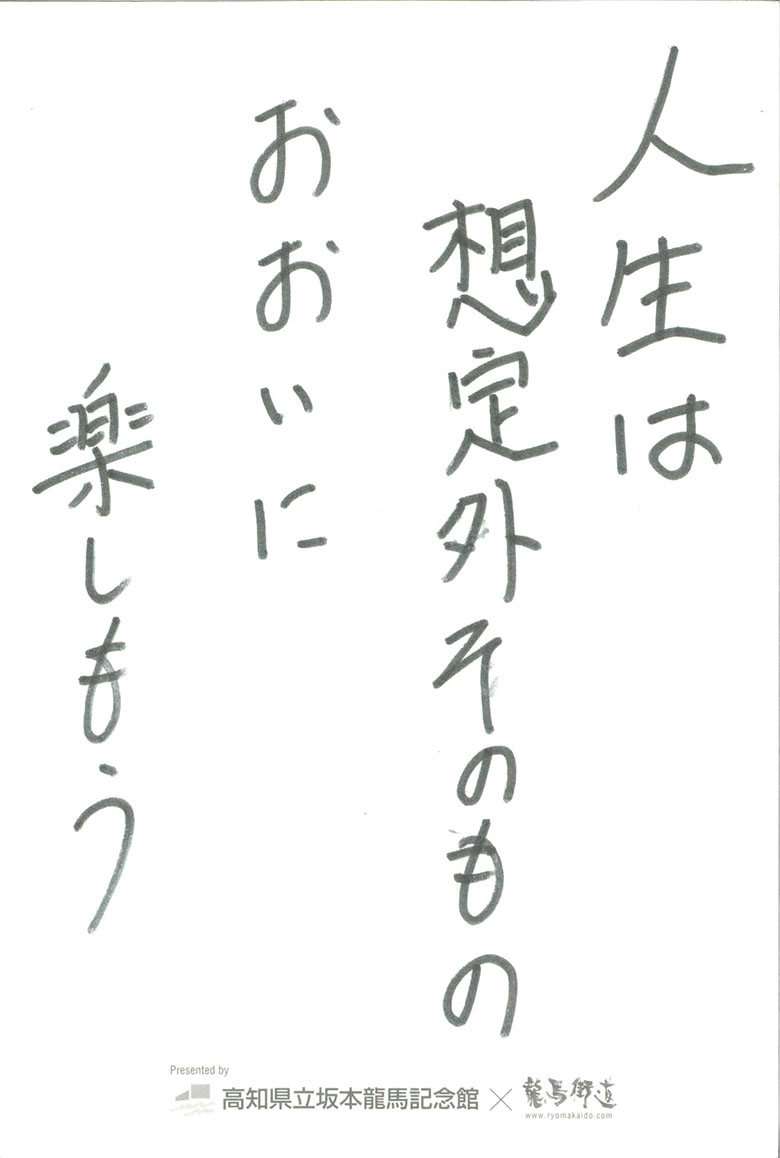 人生は
想定外そのもの
おおいに
楽しもう
Presented by
高知県立坂本龍馬記念館 × 龍馬街道
www.ryomakaido.com